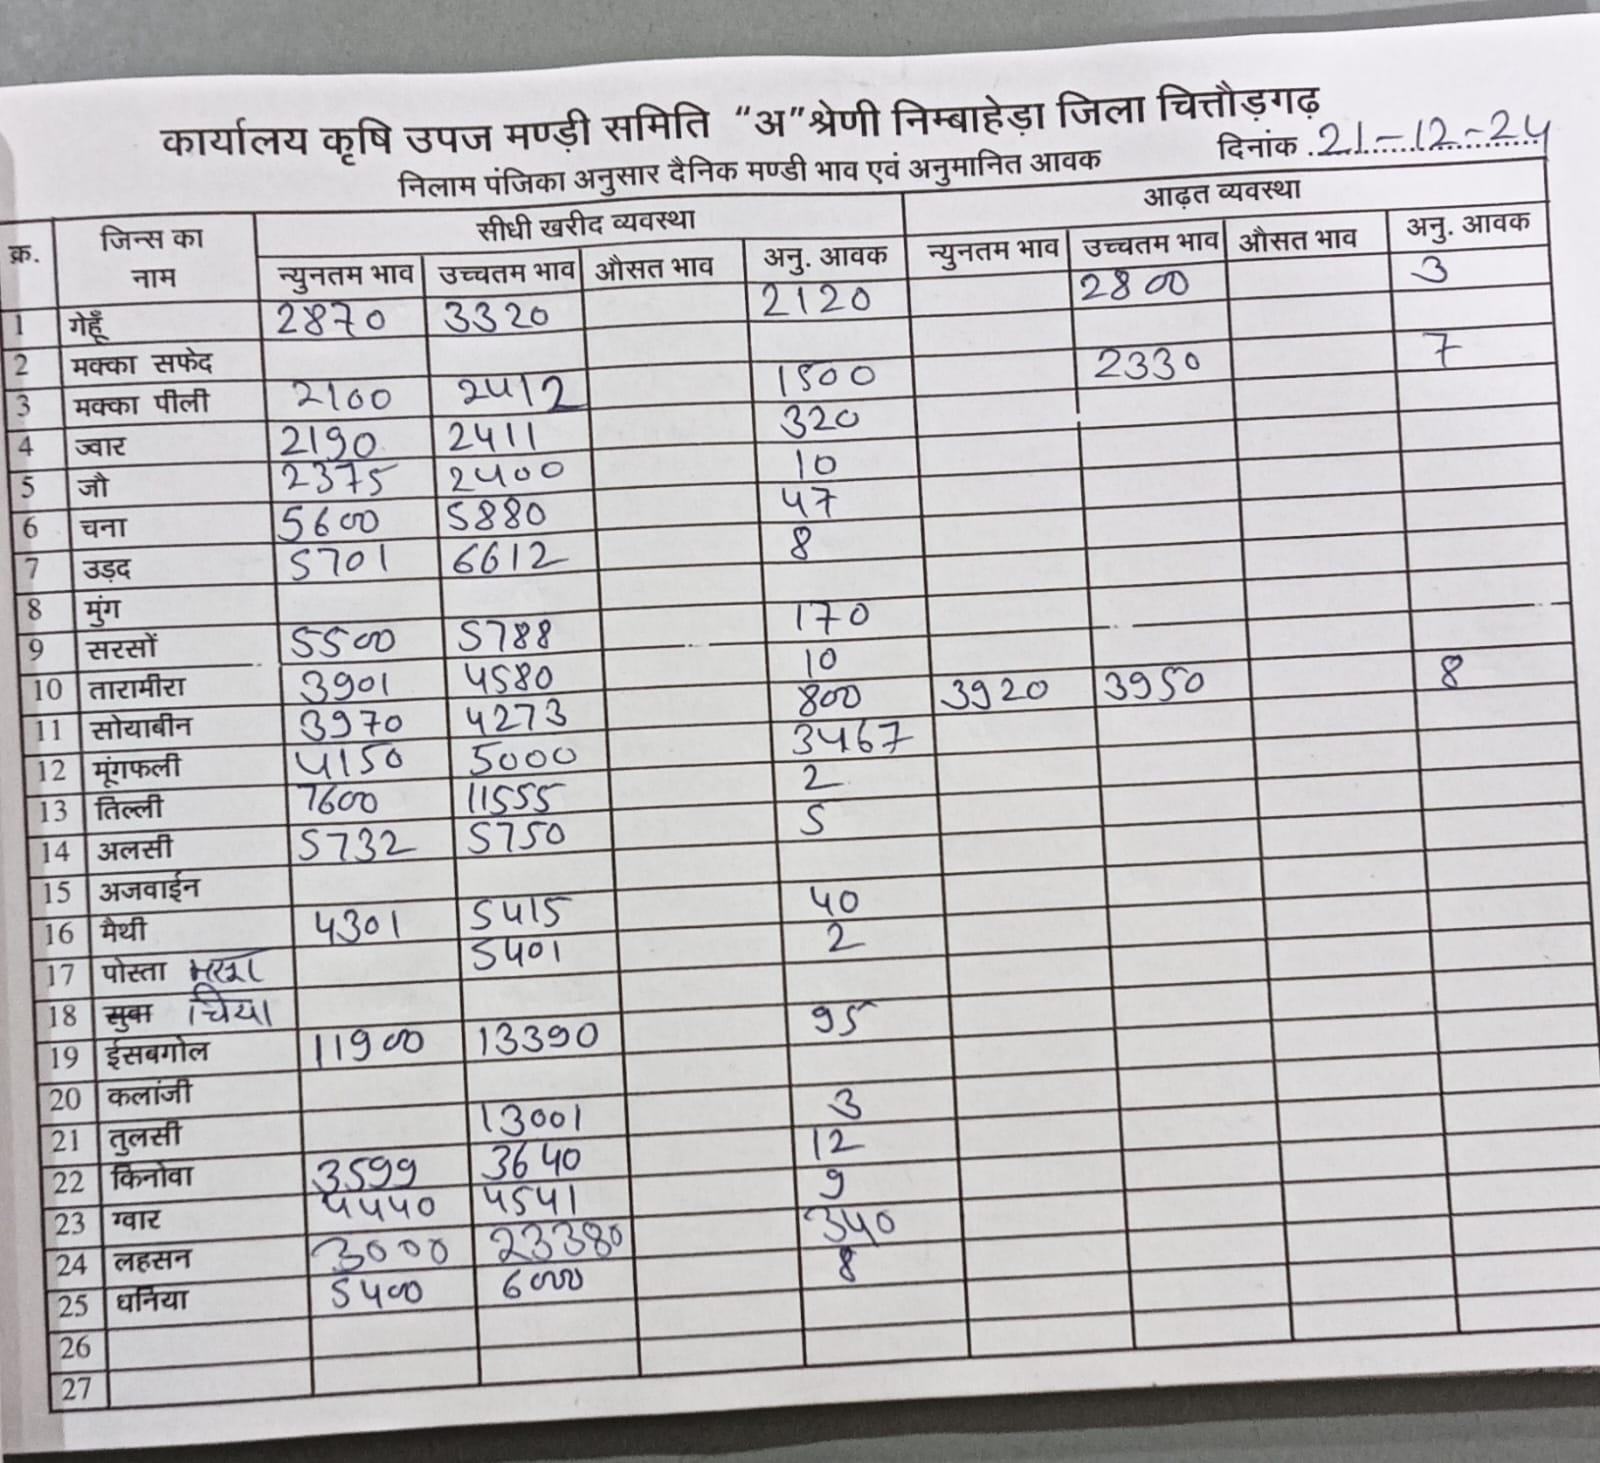 कार्यालय कृषि उपज मण्ड़ी समिति "अ" श्रेणी निम्बाहेड़ा जिला चित्तौड़गढ़
दिनांक 21-12-24
निलाम पंजिका अनुसार दैनिक मण्डी भाव एवं अनुमानित आवक
क्र. जिन्स का नाम सीधी खरीद व्यवस्था आढ़त व्यवस्था
न्युनतम भाव उच्चतम भाव औसत भाव अनु. आवक न्युनतम भाव उच्चतम भाव औसत भाव अनु. आवक
1 गेहूँ 2870 3320 2120 2800 3
2 मक्का सफेद
3 मक्का पीली 2100 2412 1500 2330 7
4 ज्वार 2190 2411 320
5 जौ 2375 2400 10
6 चना 5600 5880 47
7 उड़द 5701 6612 8
8 मुंग
9 सरसों 5500 5788 170
10 तारामीरा 3901 4580 10
11 सोयाबीन 3970 4273 800 3920 3950 8
12 मूंगफली 4150 5000 3467
13 तिल्ली 7600 11555 2
14 अलसी 5732 5750 5
15 अजवाईन
16 मैथी 4301 5415 40
17 पोस्ता 5401 2
18 सुवा चिया
19 ईसबगोल 11900 13390 95
20 कलांजी
21 तुलसी 13001 3
22 किनोवा 3599 3640 12
23 ग्वार 4440 4541 9
24 लहसन 3000 23380 340
25 धनिया 5400 6000 8
26
27